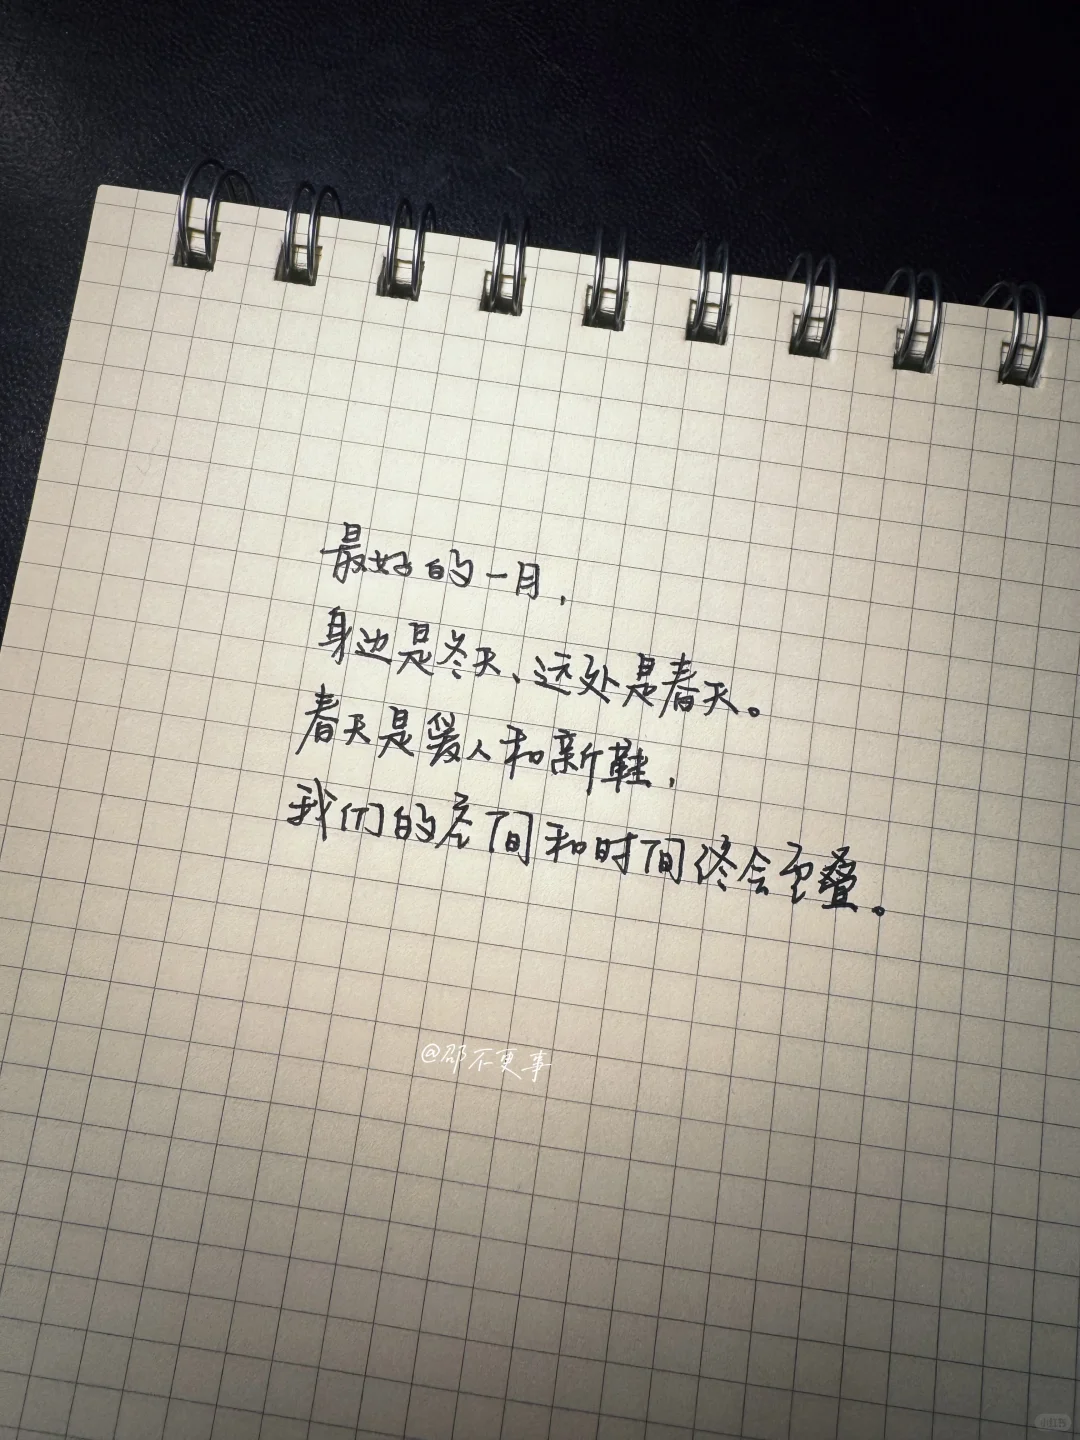 最好的一月，
身边是冬天、远处是春天。
春天是爱人和新鞋，
我们的空间和时间终会重叠。
@邵不更事
小红书